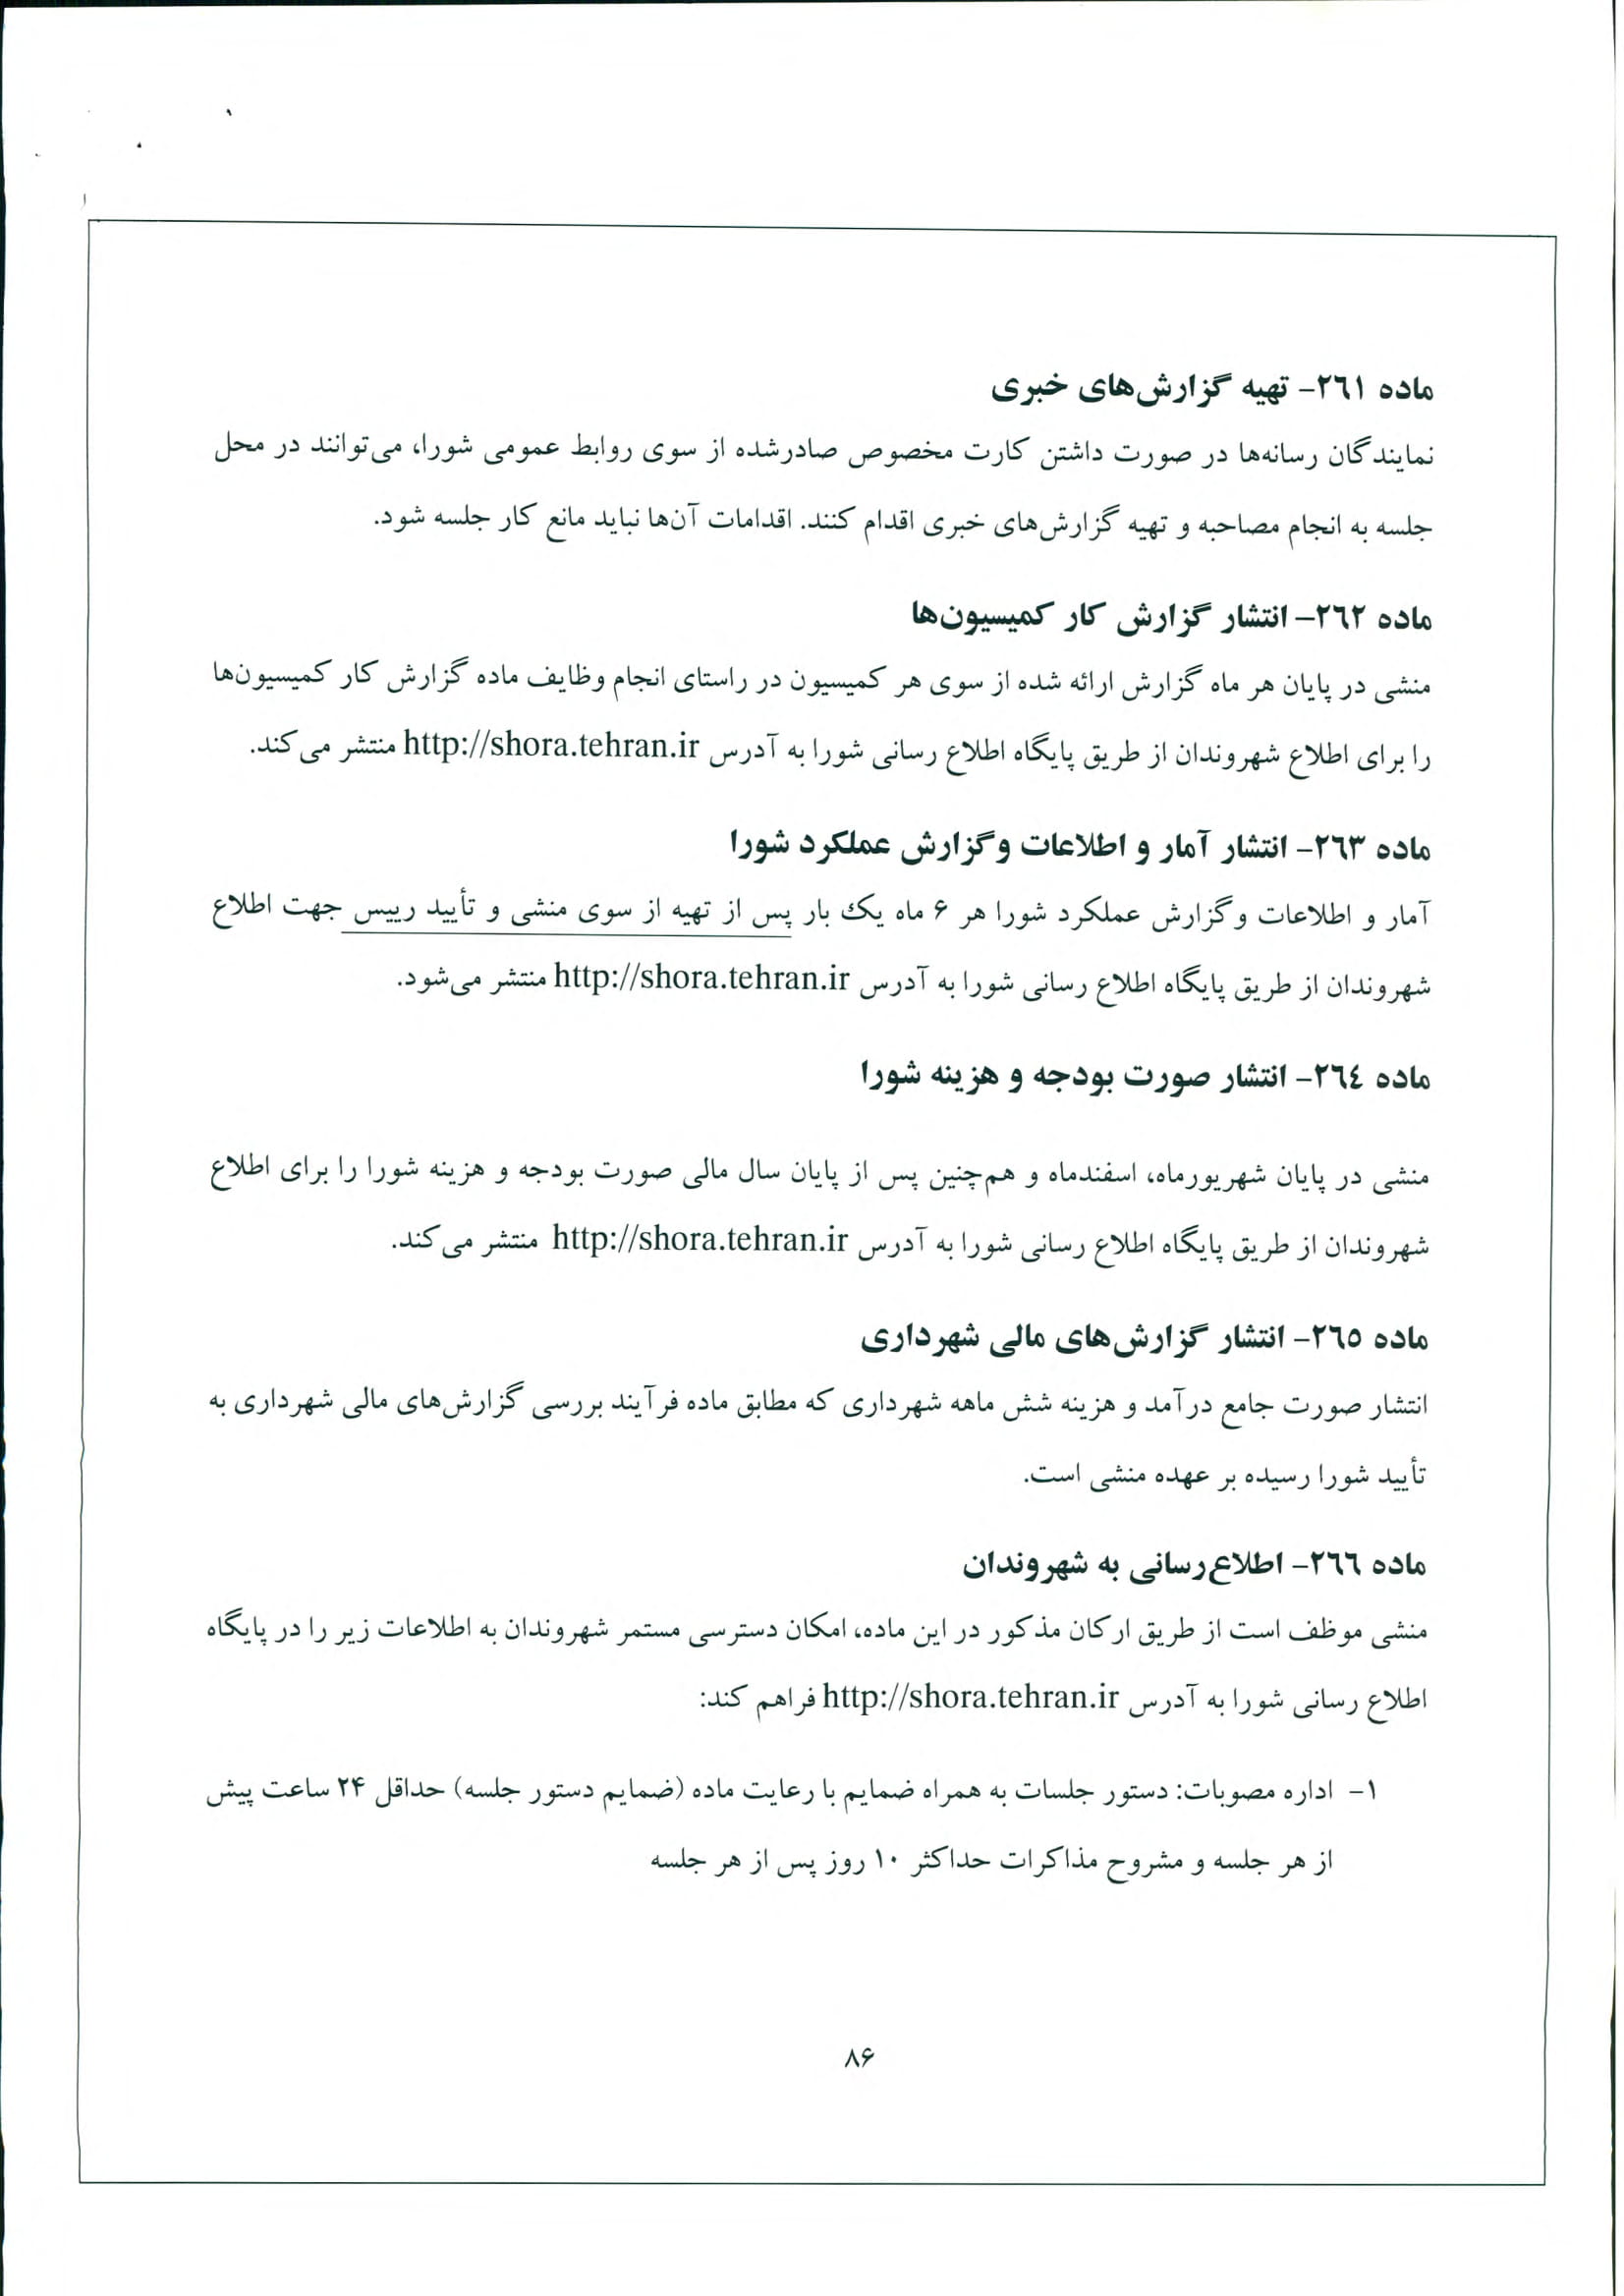 ماده ۲٦۱- تهیه گزارش‌های خبری
نمایندگان رسانه‌ها در صورت داشتن کارت مخصوص صادرشده از سوی روابط عمومی شورا، می‌توانند در محل
جلسه به انجام مصاحبه و تهیه گزارش‌های خبری اقدام کنند. اقدامات آن‌ها نباید مانع کار جلسه شود.
ماده ۲٦۲- انتشار گزارش کار کمیسیون‌ها
منشی در پایان هر ماه گزارش ارائه شده از سوی هر کمیسیون در راستای انجام وظایف ماده گزارش کار کمیسیون‌ها
را برای اطلاع شهروندان از طریق پایگاه اطلاع رسانی شورا به آدرس http://shora.tehran.ir منتشر می‌کند.
ماده ۲٦۳- انتشار آمار و اطلاعات وگزارش عملکرد شورا
آمار و اطلاعات وگزارش عملکرد شورا هر ۶ ماه یک بار پس از تهیه از سوی منشی و تأیید رییس جهت اطلاع
شهروندان از طریق پایگاه اطلاع رسانی شورا به آدرس http://shora.tehran.ir منتشر می‌شود.
ماده ۲٦٤- انتشار صورت بودجه و هزینه شورا
منشی در پایان شهریورماه، اسفندماه و هم‌چنین پس از پایان سال مالی صورت بودجه و هزینه شورا را برای اطلاع
شهروندان از طریق پایگاه اطلاع رسانی شورا به آدرس http://shora.tehran.ir منتشر می‌کند.
ماده ۲٦٥- انتشار گزارش‌های مالی شهرداری
انتشار صورت جامع درآمد و هزینه شش ماهه شهرداری که مطابق ماده فرآیند بررسی گزارش‌های مالی شهرداری به
تأیید شورا رسیده بر عهده منشی است.
ماده ۲٦٦- اطلاع‌رسانی به شهروندان
منشی موظف است از طریق ارکان مذکور در این ماده، امکان دسترسی مستمر شهروندان به اطلاعات زیر را در پایگاه
اطلاع رسانی شورا به آدرس http://shora.tehran.ir فراهم کند:
۱- اداره مصوبات: دستور جلسات به همراه ضمایم با رعایت ماده (ضمایم دستور جلسه) حداقل ۲۴ ساعت پیش
از هر جلسه و مشروح مذاکرات حداکثر ۱۰ روز پس از هر جلسه
۸۶